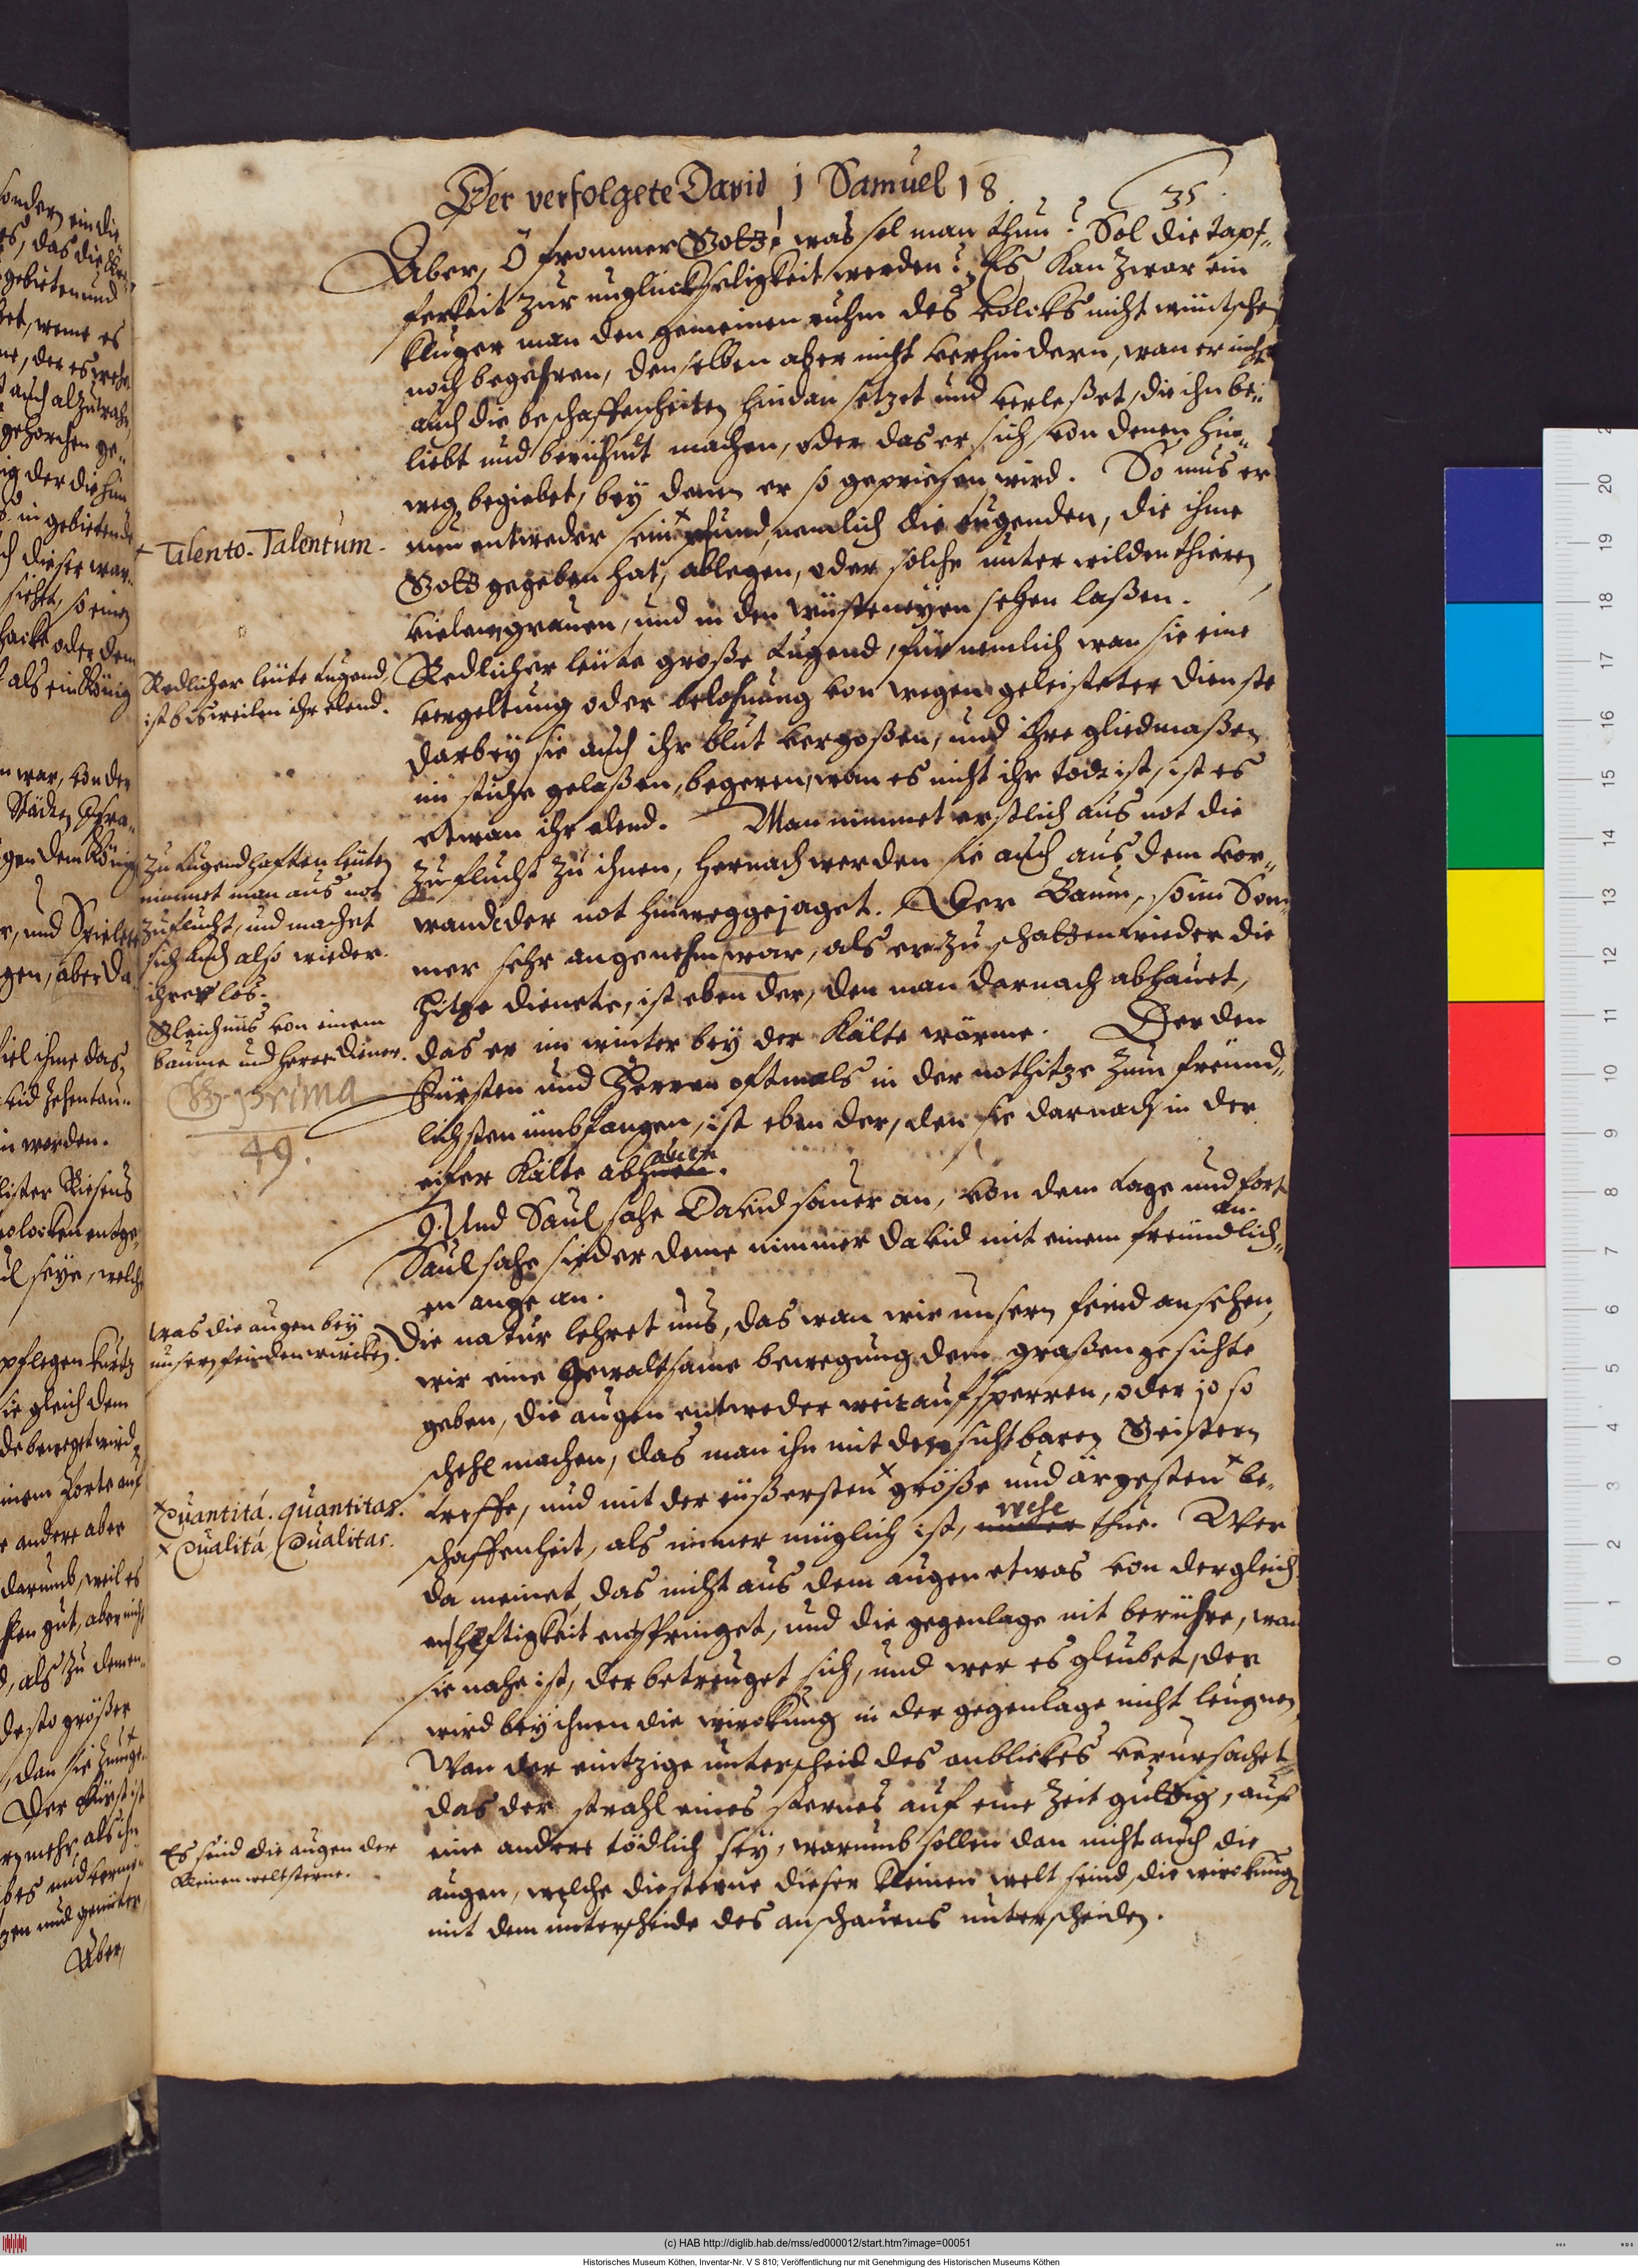 Der verfolgete David 1 Samuel 18
35.
Aber, Ô frommer Gott! was sol man thun? Sol die tapf„
ferkeit zur unglückseligkeit werden? Es kan zwar ein
kluger man den gemeinen ruhm des volcks nicht wüntschen
noch begehren, denselben aber nicht verhindern, wan er nicht
auch die beschaffenheiten hindan setzet und verleßet, die ihn be„
liebt und berühmt machen, oder das er sich von denen hin„
weg begiebet, bey denen er so gepriesen wird. So mus er
nun entweder sein pfund, nemlich die tugenden, die ihme
Gott gegeben hat, ablegen, oder solche unter wilden thieren
vielen grauen, und in den wüsteneyen sehen laßen.
Redlicher leüte große tugend, fürnemlich wan sie eine
vergeltung oder belohnung von wegen geleisteter dienste
darbey sie auch ihr blut vergoßen, und ihre gliedmaßen
im stiche gelaßen, begeren, wan es nicht ihr todt ist, ist es
etwan ihr elend. Man nimmet erstlich aus not die
zuflucht zu ihnen, hernach werden sie auch aus dem vor„
wand der not hinweggejaget. Der Baum, so im Som„
mer sehr angenehm war, als er zu schatten wieder die
hitze dienete, ist eben der, den man darnach abhauet,
das er im winter bey der Kälte wärme. Der den
Fürsten und Herren oftmals in der nothitze zum freünd„
lichsten umbfangen, ist eben der, den sie darnach in der
eifer Kälte abhauen.
9. Und Saul sahe David sauer an, von dem tage und fort
an.
Saul sahe sieder deme nimmer David mit einem freündlich„
en auge an.
Die natur lehret uns, das wan wir unsern feind ansehen,
wir eine gewaltsame bewegung dem graßen gesichte
geben, die augen entweder weit aufsperren, oder jo so
schehl machen, das man ihn mit den sichtbaren Geistern
treffe, und mit der eüßersten größe und ärgesten be„
schaffenheit, als immer müglich ist, wehe thue. Wer
da meinet, das nicht aus dem augen etwas von dergleich
en heftigkeit entspringet, und die gegenlage nit berühre, wan
sie nahe ist, der betreuget sich, und wer es gleubet, der
wird bey ihnen die wirckung in der gegenlage nicht leugnen
Wan der eintzige unterscheid des anblickes verursachet
das der strahl eines sternes auf eine Zeit gültig, auf
eine andere tödlich sey, warumb sollen dan nicht auch die
augen, welche die sterne dieser kleinen welt seind, die wirckung
mit dem unterscheide des anschauens unterscheiden.
+ Talento. Talentum.
Redlicher leüte tugend,
ist bisweilen ihr elend.
Zu tugendhaften leüten
nimmet man aus not
zuflucht, und machet
sich auch also wieder
ihrer los.
Gleichnüs von einem
baume und herren diener.
prima
49.
Was die augen bey
unsern feinden wircken.
x Quantitá. quantitas.
x Qualitá. Qualitas.
Es seind die augen der
kleinen welt sterne.
(c) HAB http://diglib.hab.de/mss/ed000012/start.htm?image=00051
Historisches Museum Köthen, Inventar-Nr. V S 810; Veröffentlichung nur mit Genehmigung des Historischen Museums Köthen